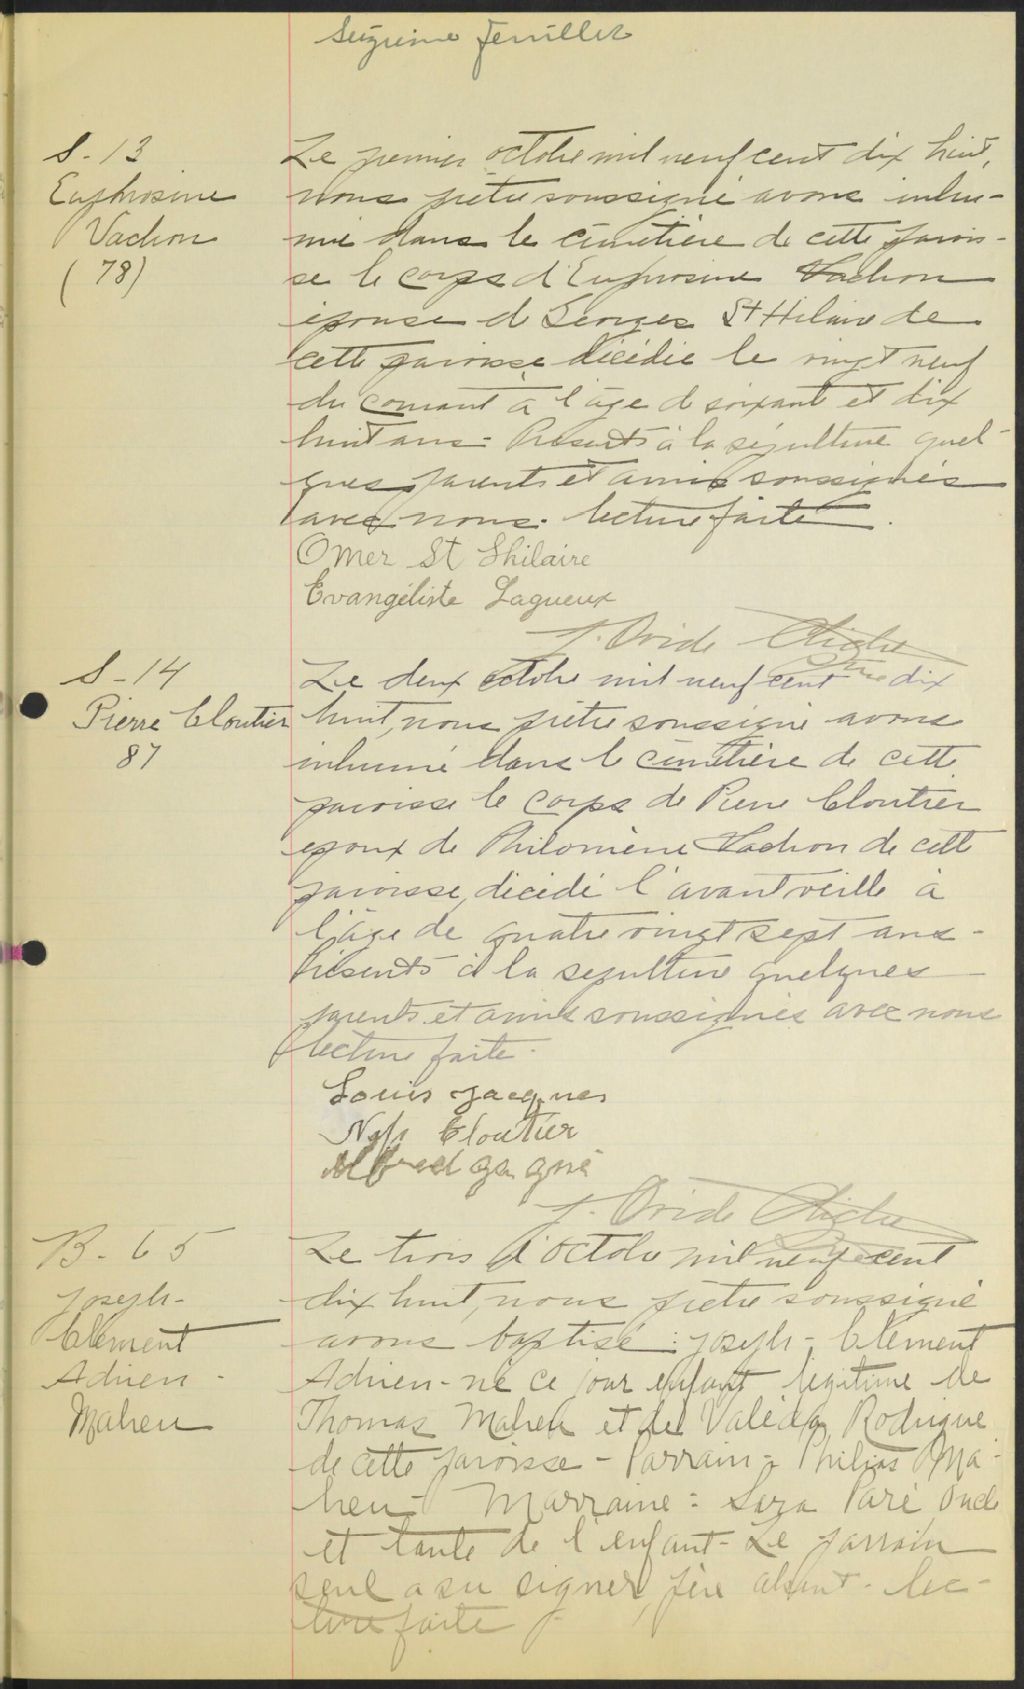 Seizième feuillet
S-13
Euphrosine
Vachon
(78)
Le premier octobre mil neuf cent dix huit,
nous prêtre soussigné avons inhu-
mé dans le cimetière de cette parois-
se le corps d'Euphrosine Vachon
épouse de Georges St Hilaire de
cette paroisse décédée le vingt neuf
du courant à l'âge de soixante et dix
huit ans - Présents à la sépulture quel-
ques parents et amis soussignés
avec nous. lecture faite.
Omer St Shilaire
Evangéliste Lagueux
J. Ovide Cliche
Ptre
S-14
Pierre Cloutier
87
Le deux octobre mil neuf cent dix
huit, nous prêtre soussigné avons
inhumé dans le cimetière de cette
paroisse le corps de Pierre Cloutier
époux de Philomène Vachon de cette
paroisse, décédé l'avant veille à
l'âge de quatre vingt sept ans -
Présents à la sépulture quelques
parents et amis soussignés avec nous
lecture faite -
Louis Jacques
Nap Cloutier
Alfred gagné
J. Ovide Cliche
B-65
Joseph-
Clément
Adrien -
Maheu
Le trois d'octobre mil neuf cent
dix huit, nous prêtre soussigné
avons baptisé : Joseph-Clément
Adrien - né ce jour enfant légitime de
Thomas Maheu et de Valéda Rodrigue
de cette paroisse - Parrain = Philias Ma-
heu - Marraine = Sara Paré oncle
et tante de l'enfant - Le parrain
seul a su signer, père absent - lec-
ture faite